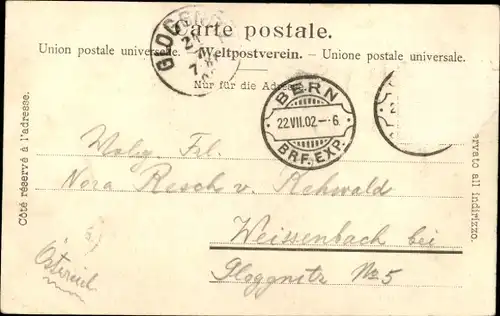 Carte postale.
Union postale universelle. - Weltpostverein. - Unione postale universale.
Nur für die Adresse.
GLOGGNITZ
BERN
22.VII.02.-6.
BRF. EXP.
Côté réservé à l'adresse.
servato all indirizzo.
Frl.
Nora Resch v. Rehwald
Weissenbach bei
Gloggnitz No 5
Östereich